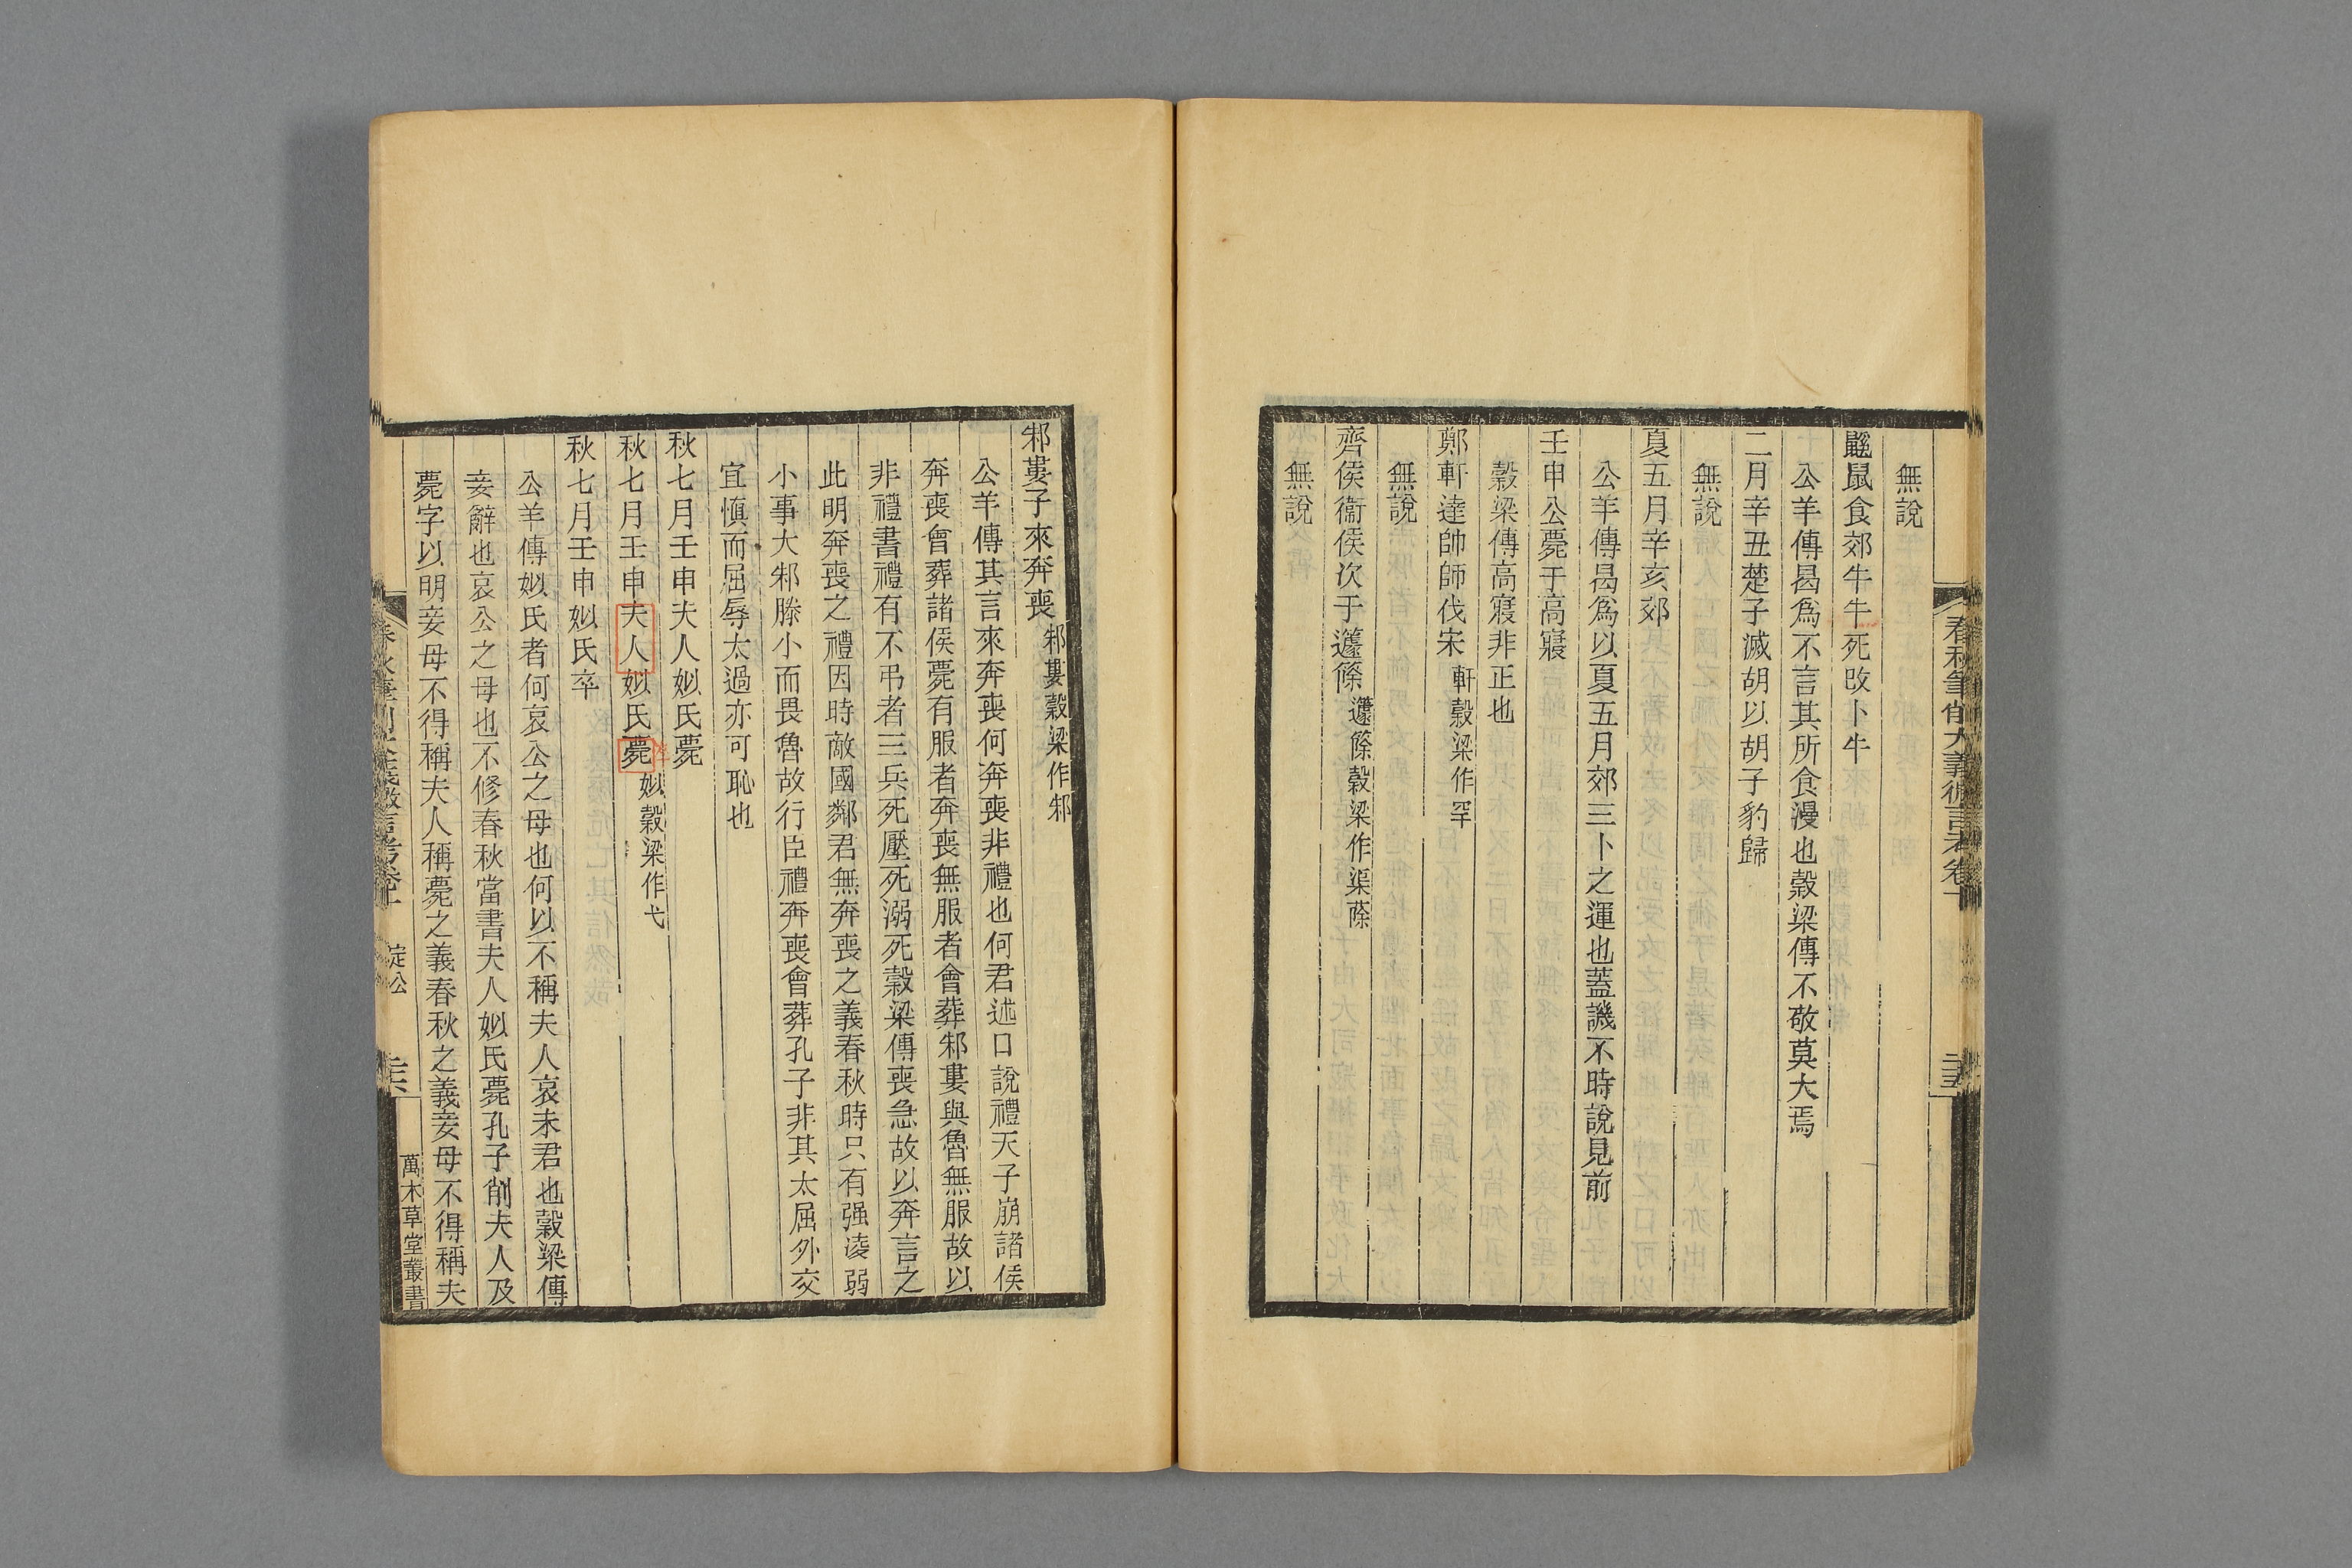 春秋筆削大義微言考卷十
無說
鼷鼠食郊牛牛死改卜牛
公羊傳曷爲不言其所食漫也穀梁傳不敬莫大焉
二月辛丑楚子滅胡以胡子豹歸
無說
夏五月辛亥郊
公羊傳曷爲以夏五月郊三卜之運也蓋譏不時說見前
壬申公薨于高寢
穀梁傳高寢非正也
鄭軒達帥師伐宋 軒穀梁作罕
無說
齊侯衞侯次于籧篨 籧篨穀梁作渠蒢
無說
邾婁子來奔喪 邾婁穀梁作邾
公羊傳其言來奔喪何奔喪非禮也何君述口說禮天子崩諸侯
奔喪會葬諸侯薨有服者奔喪無服者會葬邾婁與魯無服故以
非禮書禮有不弔者三兵死壓死溺死穀梁傳喪急故以奔言之
此明奔喪之禮因時敵國鄰君無奔喪之義春秋時只有强凌弱
小事大邾滕小而畏魯故行臣禮奔喪會葬孔子非其太屈外交
宜慎而屈辱太過亦可恥也
秋七月壬申夫人姒氏薨
秋七月壬申夫人姒氏薨 卒 姒穀梁作弋
秋七月壬申姒氏卒
公羊傳姒氏者何哀公之母也何以不稱夫人哀未君也穀梁傳
妾辭也哀公之母也不修春秋當書夫人姒氏薨孔子削夫人及
薨字以明妾母不得稱夫人稱薨之義春秋之義妾母不得稱夫
春秋筆削大義微言考卷十 定公 萬木草堂叢書